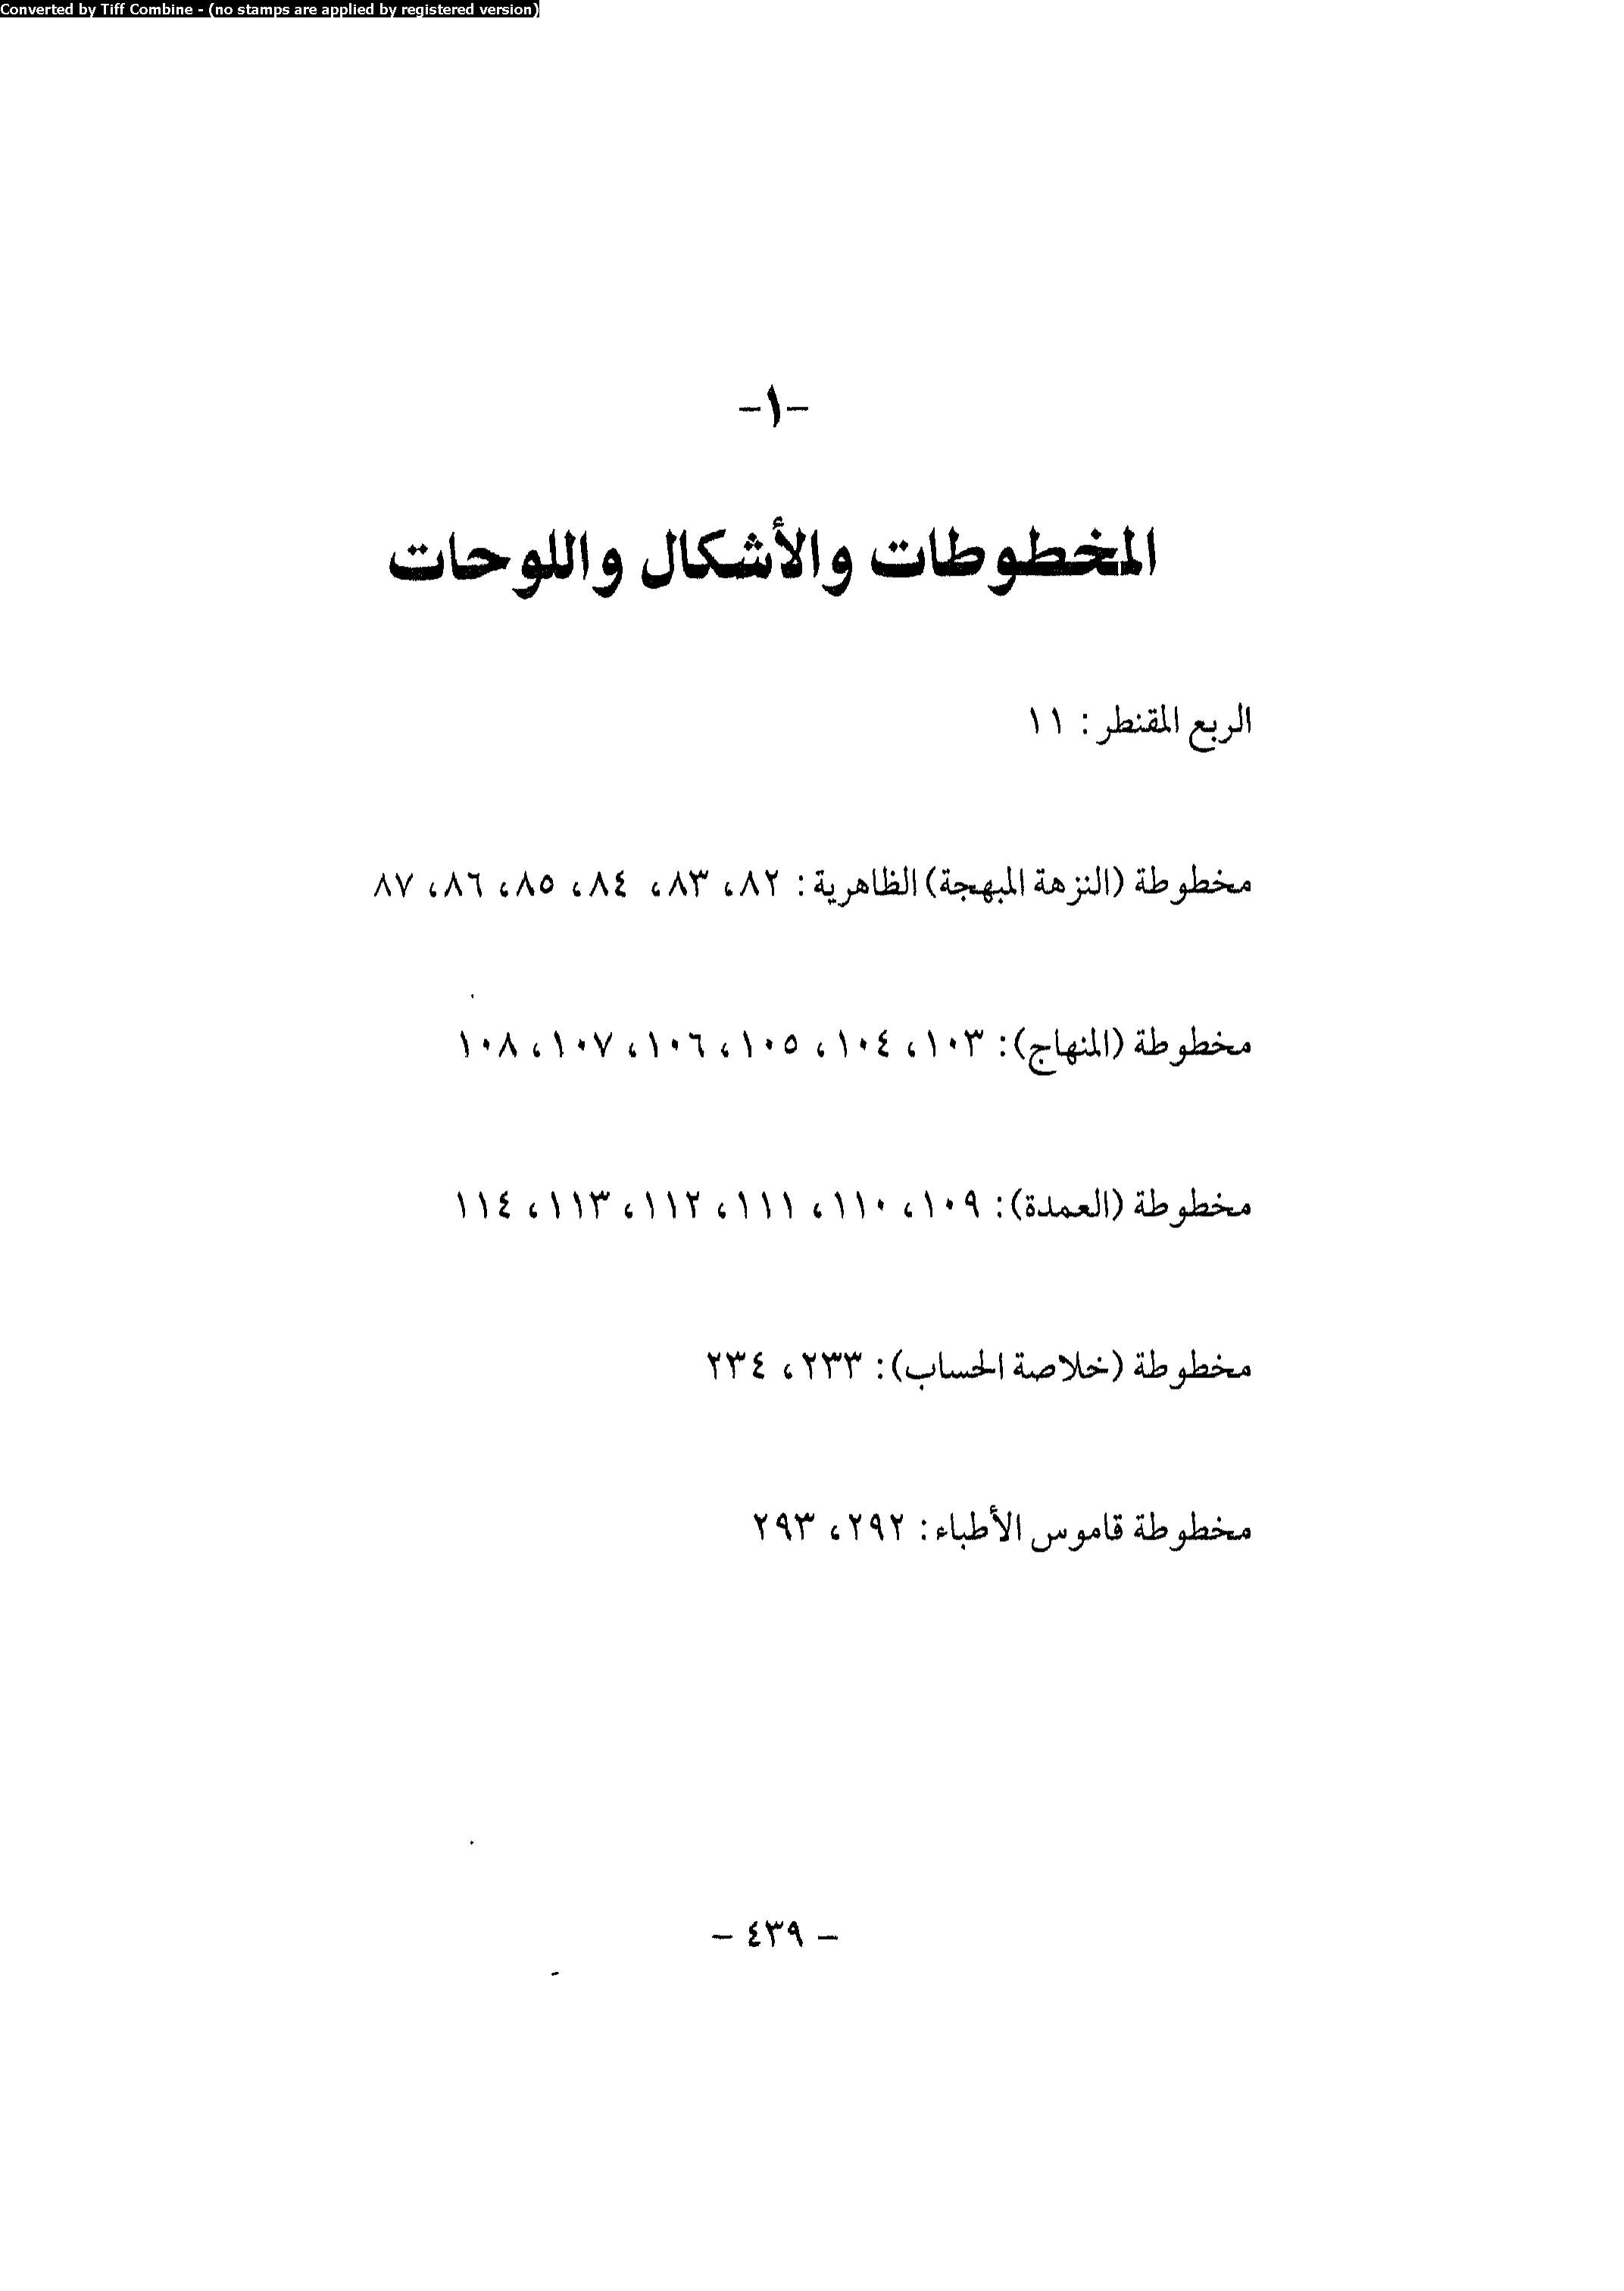 Converted by Tiff Combine - (no stamps are applied by registered version)
-١-
المخطوطات والأشكال واللوحات
الربع المقنطر: ١١
مخطوطة (النزهة المبهجة) الظاهرية: ٨٢، ٨٣، ٨٤، ٨٥، ٨٦، ٨٧
مخطوطة (المنهاج): ١٠٣، ١٠٤، ١٠٥، ١٠٦، ١٠٧، ١٠٨
مخطوطة (العمدة): ١٠٩، ١١٠، ١١١، ١١٢، ١١٣، ١١٤
مخطوطة (خلاصة الحساب): ٢٣٣، ٢٣٤
مخطوطة قاموس الأطباء: ٢٩٢، ٢٩٣
- ٤٣٩ -